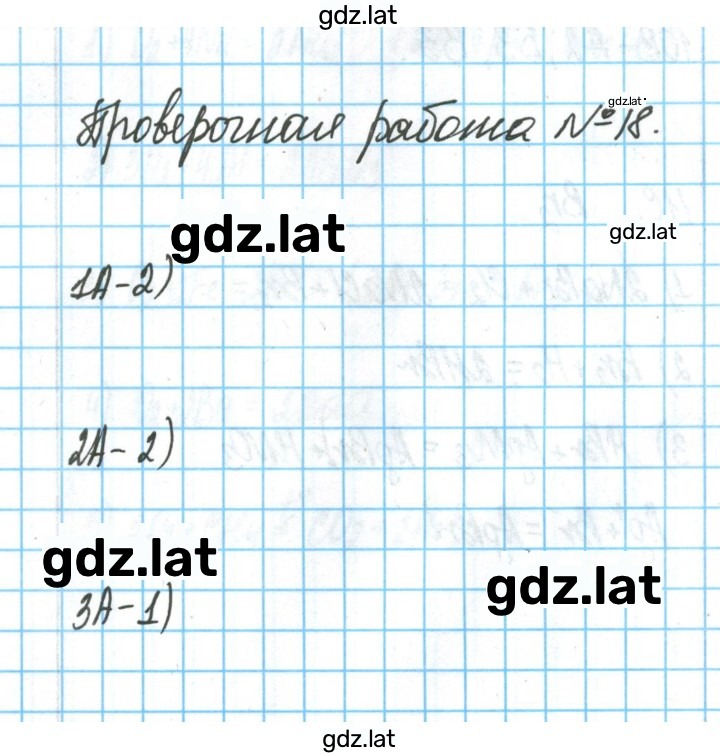 gdz.lat
Проверочная работа №18.
gdz.lat
gdz.lat
gdz.lat
1А-2)
2А-2)
gdz.lat
gdz.lat
3А-1)
gdz.lat